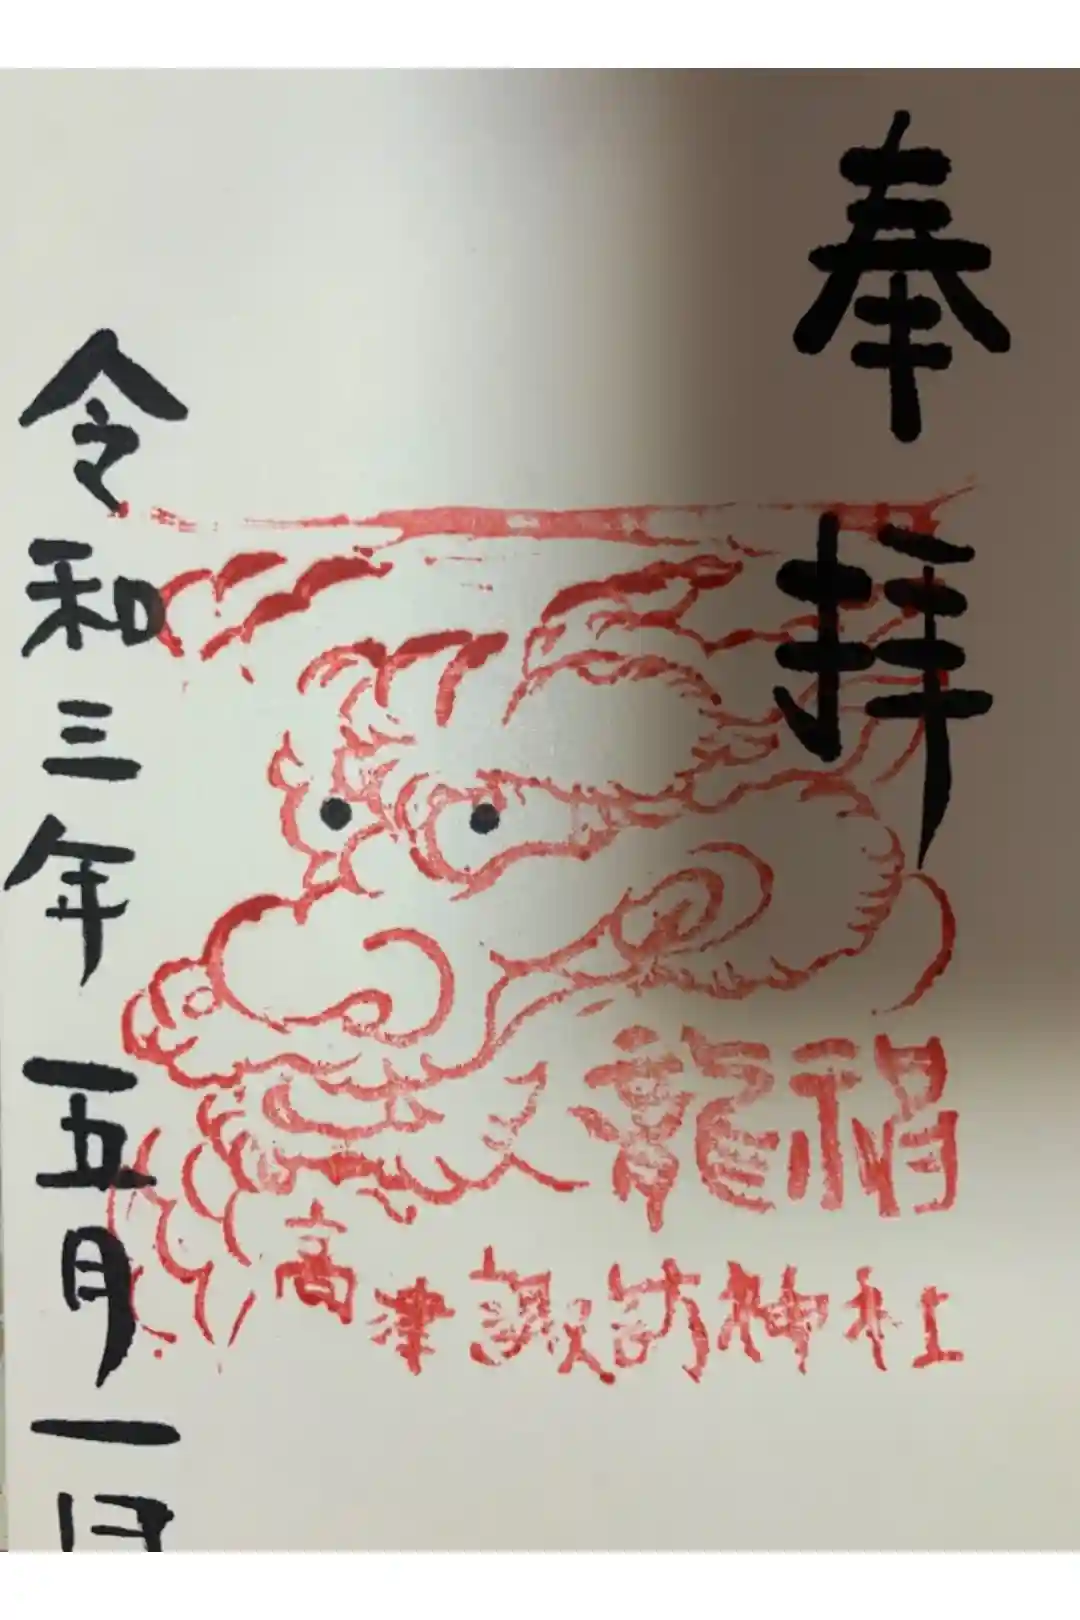 奉拝
龍福
高津諏訪神社
令和三年五月一日